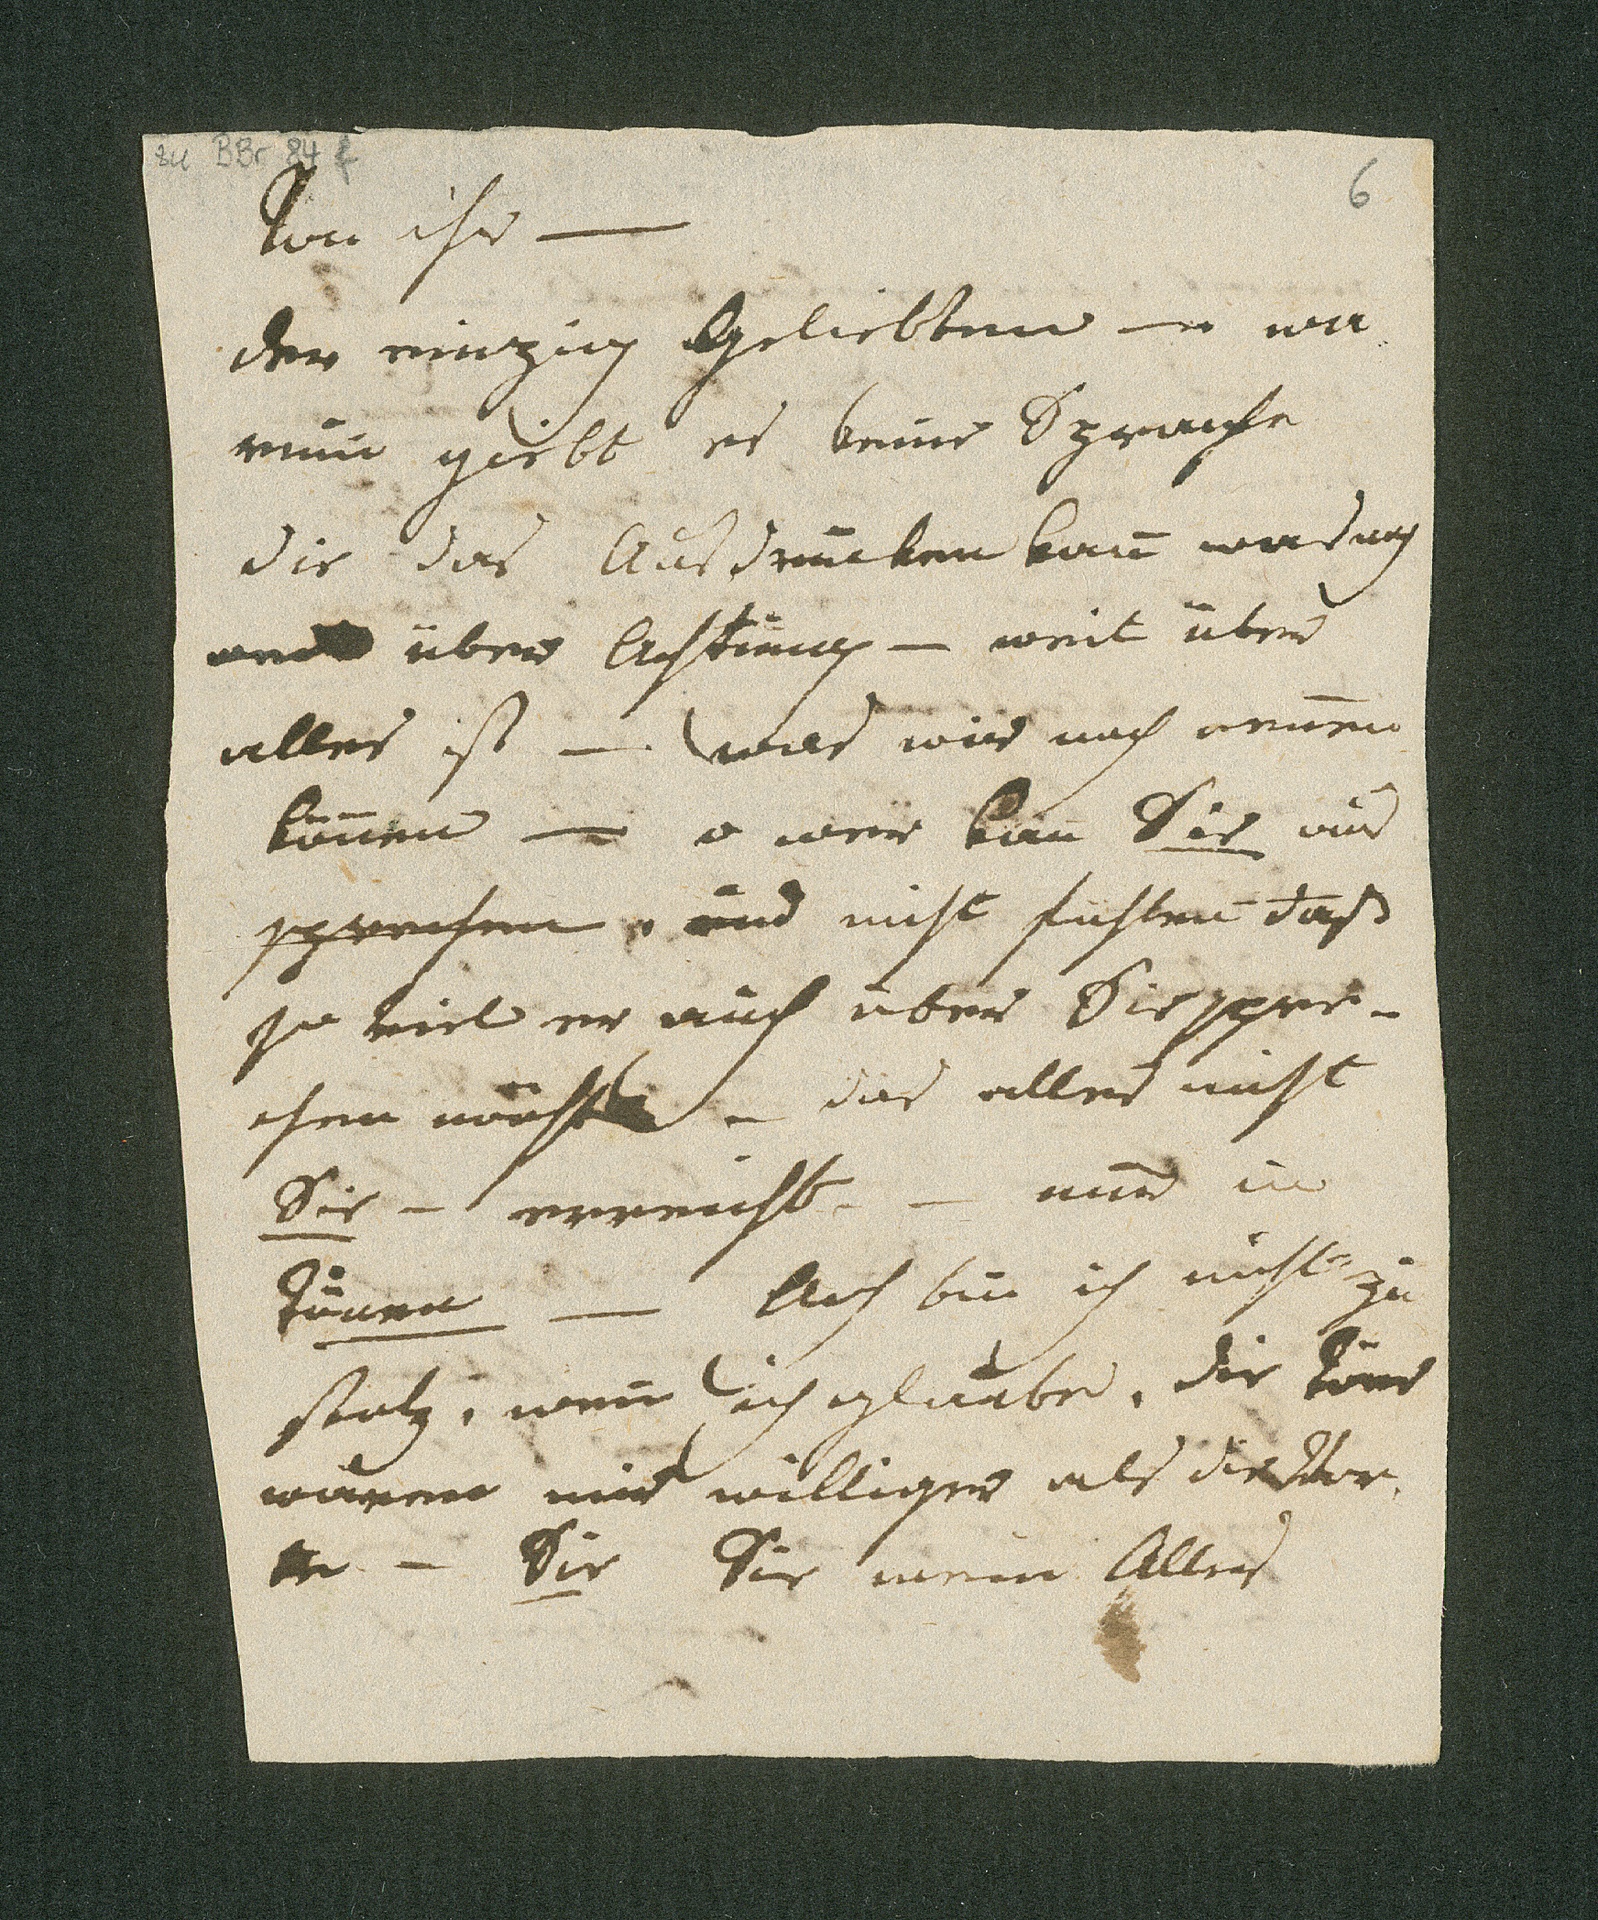 zu BBr 84 f
6
Von ihr —
der einzig Geliebten — wa
rum giebt es keine Sprache
die das Ausdrücken kann was noch
weit über Achtung — weit über
alles ist — was wir noch nennen
können — o wer kan Sie aus
sprechen, und nicht fühlen daß
so viel er auch über Sie spre-
chen möchte — das alles nicht
Sie — erreicht — — nur in
Tönen — Ach bin ich nicht zu
stolz, wenn ich glaube, die Töne
wären mir williger als die Wor
te — Sie Sie mein Alles